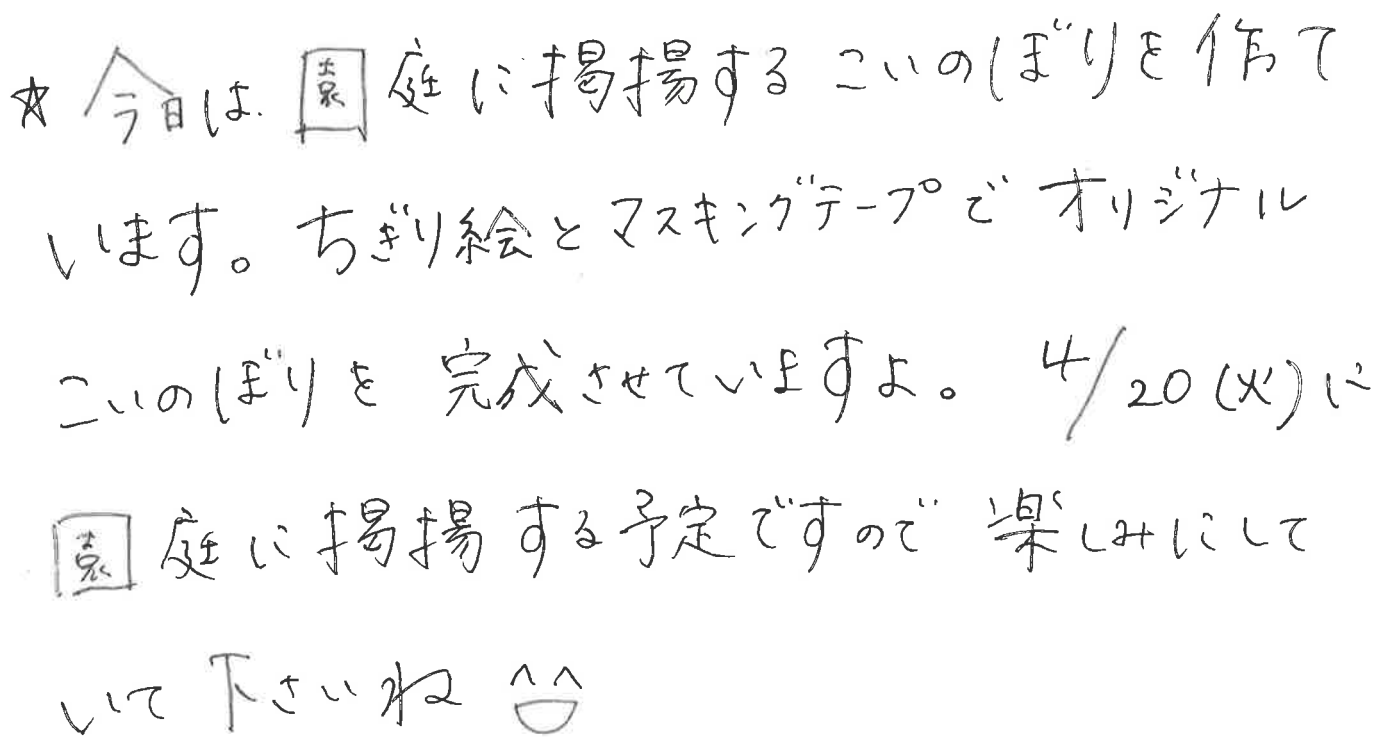 ☆今日は園庭に掲揚するこいのぼりを作って
います。ちぎり絵とマスキングテープでオリジナル
こいのぼりを完成させていますよ。4/20(火)に
園庭に掲揚する予定ですので楽しみにして
いて下さいね^^